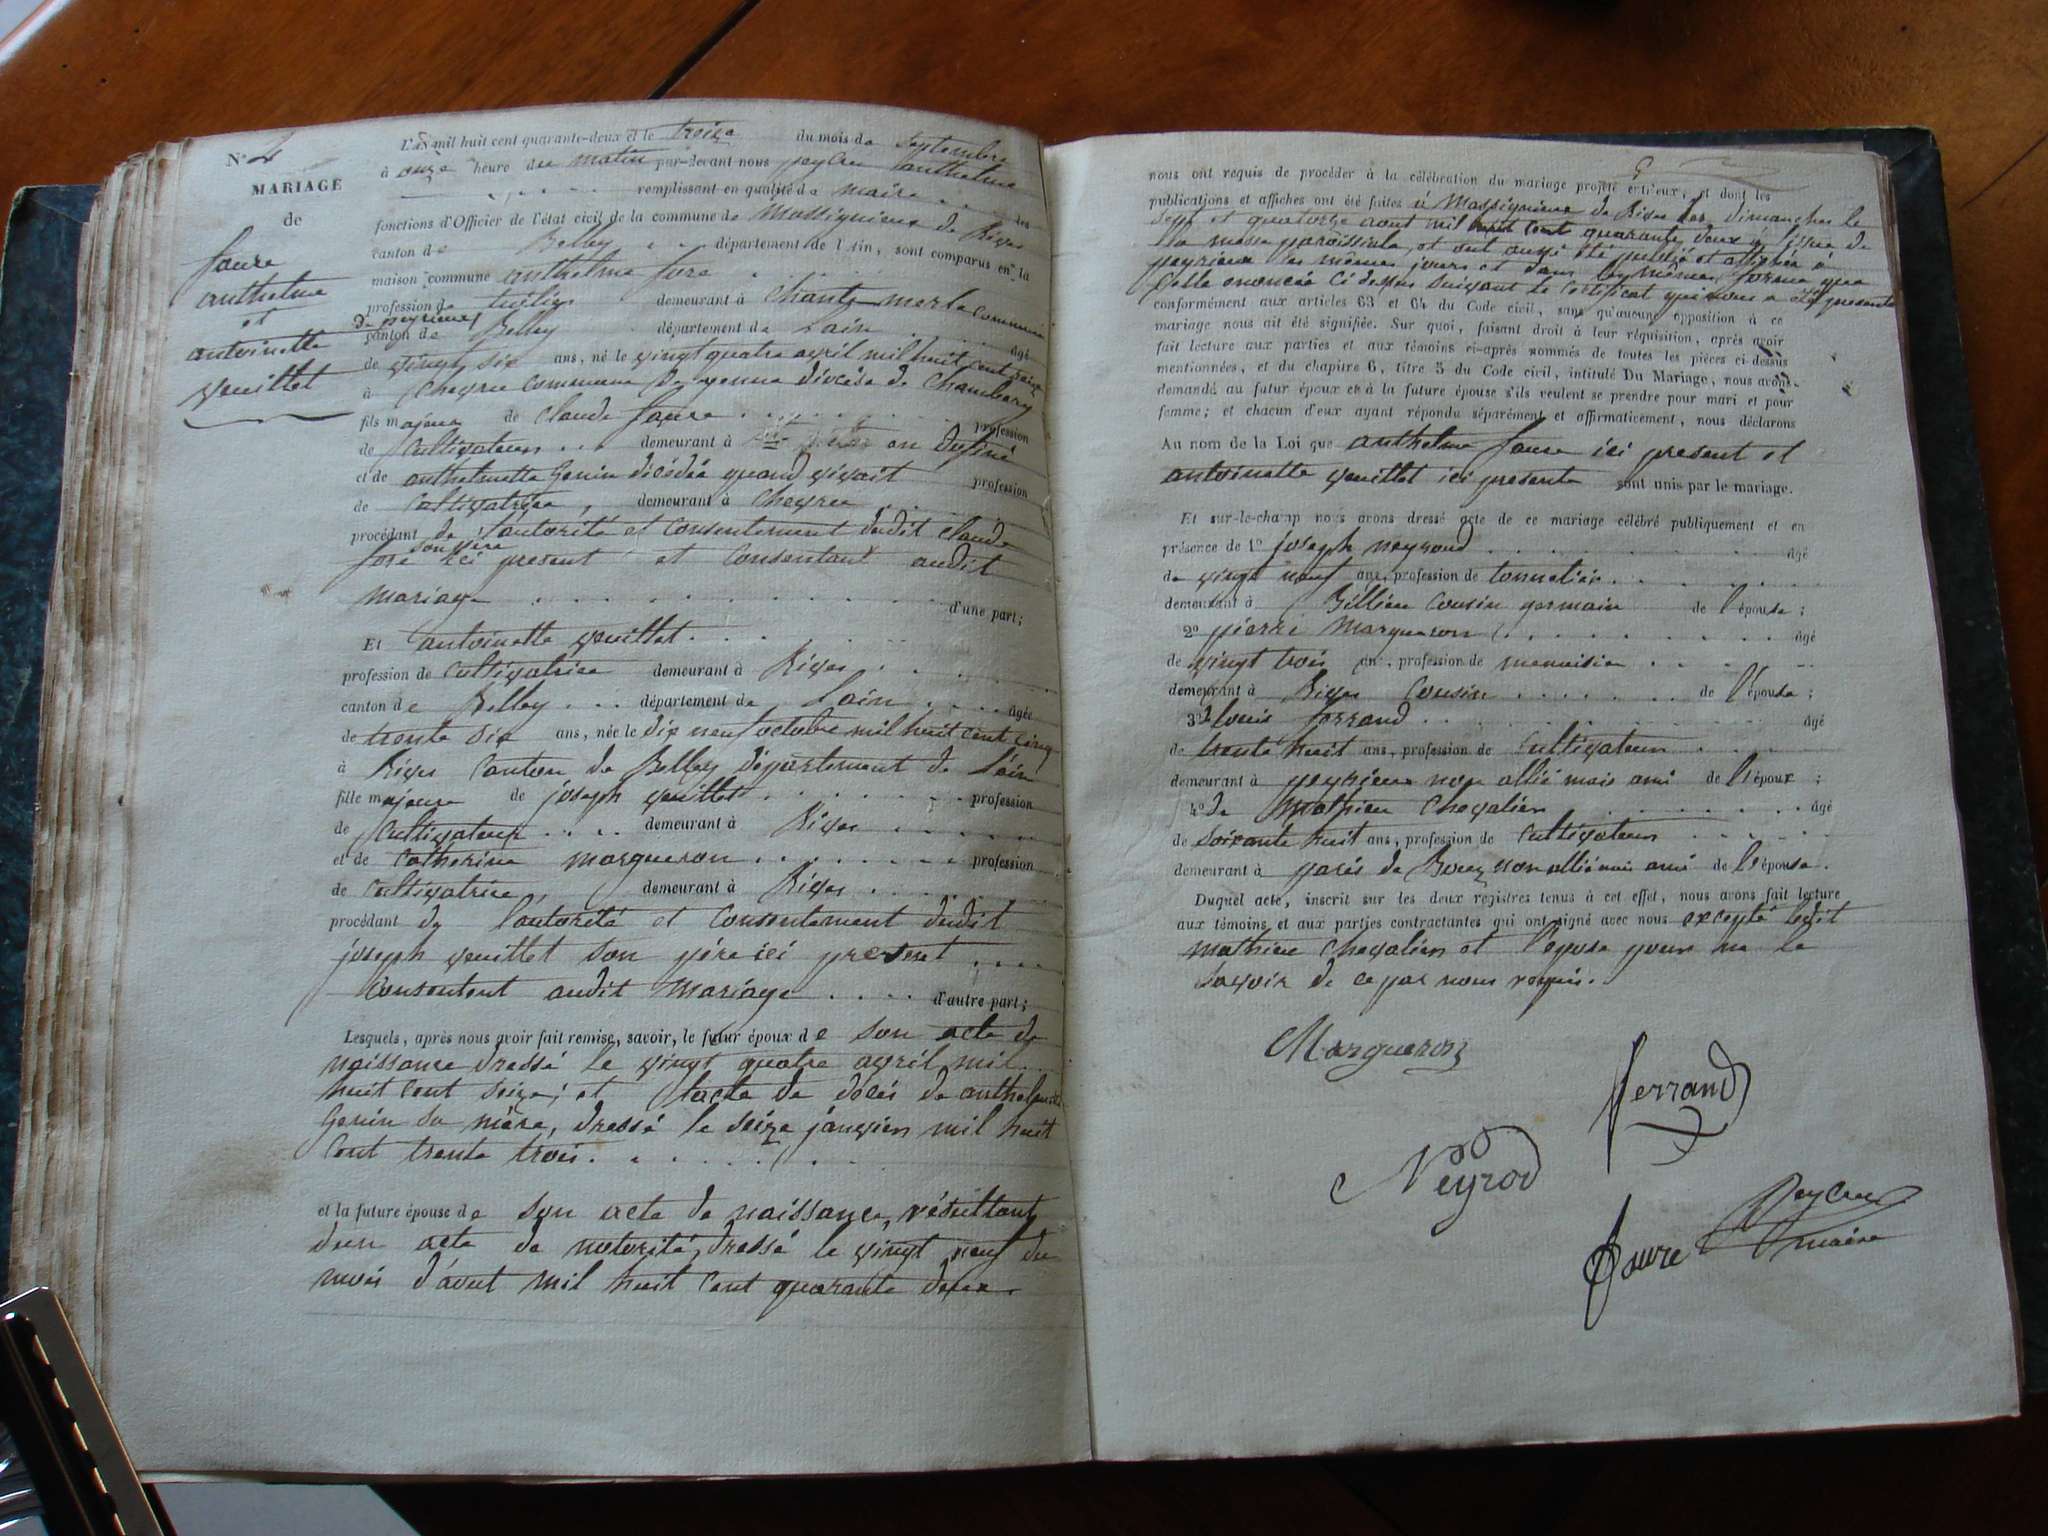 N° 2
MARIAGE
de
faure
anthelme
et
antoinette
veuillet
L'an mil huit cent quarante-deux et le treize du mois de septembre
à onze heure du matin par-devant nous peyler anthelme
remplissant en qualité de maire les
fonctions d'Officier de l'état civil de la commune de Massignieux de Rives
canton de Belley département de l'Ain, sont comparus en la
maison commune anthelme fore
profession de demeurant à Chantemerle commune
de peyrieux
canton de Belley département de Lain âgé
de vingt six ans, né le vingt quatre avril mil huit cent seize
à Cheyrue commune De yenne diocèse de Chambery
fils majeur de claude faure profession
de Cultivateur demeurant à en
et de anthelmette Genin décédée quand vivait profession
de Cultivatrice, demeurant à Cheyrue
procédant de l'autorité et consentement dudit claude
fore son père ici présent et Consentant audit
Mariage d'une part;
Et antoinette veuillet
profession de Cultivatrice demeurant à Rives
canton de Belley département de Lain âgée
de trente six ans, née le dix neuf octobre mil huit cent cinq
à Rives Canton de Belley département de Lain
fille majeure de joseph veuillet profession
de Cultivateur demeurant à Rives
et de Catherine margueron profession
de Cultivatrice, demeurant à Rives
procédant de lautorité et Consentement dudit
joseph veuillet son père ici présent
Consentent audit Mariage d'autre part;
Lesquels, après nous avoir fait remise, savoir, le futur époux de son acte de
naissance dressé le vingt quatre avril mil
huit cent seize; et lacte de décès de anthelmette
Genin sa mère, dressé le seize janvier mil huit
Cent trente trois.
et la future épouse de son acte de naissance, résultant
dun acte de notorité, dressé le vingt neuf du
mois d'aout mil huit Cent quarante deux.
nous ont requis de procéder à la célébration du mariage projeté entr'eux, et dont les
publications et affiches ont été faites à Massignieux de Rives les dimanches le
sept et quatorze aout mil huit cent quarante deux à lissue de
la messe paroissiale, et ont aussi été publié et affichée à
peyrieux les mêmes jours et dans les mêmes forme que
Celle énoncée Ci dessus suivant le Certificat qui nous a été présenté
conformément aux articles 63 et 64 du Code civil, sans qu'aucune opposition à ce
mariage nous ait été signifiée. Sur quoi, faisant droit à leur réquisition, après avoir
fait lecture aux parties et aux témoins ci-après nommés de toutes les pièces ci-dessus
mentionnées, et du chapitre 6, titre 5 du Code civil, intitulé Du Mariage, nous avons
demandé au futur époux et à la future épouse s'ils veulent se prendre pour mari et pour
femme; et chacun d'eux ayant répondu séparément et affirmativement, nous déclarons
Au nom de la Loi que anthelme faure ici present et
antoinette veuillet ici presente sont unis par le mariage.
Et sur-le-champ nous avons dressé acte de ce mariage célébré publiquement et en
présence de 1° joseph neyroud âgé
de vingt neuf ans, profession de tonnelier
demeurant à Billieu Cousin germain de l'épouse;
2° pierre Margueron âgé
de vingt trois an, profession de menuisier
demeurant à Rives Cousin de l'épouse;
3° louis ferrand âgé
de trente huit ans, profession de Cultivateur
demeurant à peyrieux non allié mais ami de l'époux;
4° de Mathieu Chevalier âgé
de soixante huit ans, profession de Cultivateur
demeurant à parves de non allié mais ami de l'épouse.
Duquel acte, inscrit sur les deux registres tenus à cet effet, nous avons fait lecture
aux témoins et aux parties contractantes qui ont signé avec nous excepté ledit
mathieu Chevalier et l'épouse pour ne le
savoir de ce par nous requis.
Margueron
ferrand
Neyrod
faure
maire